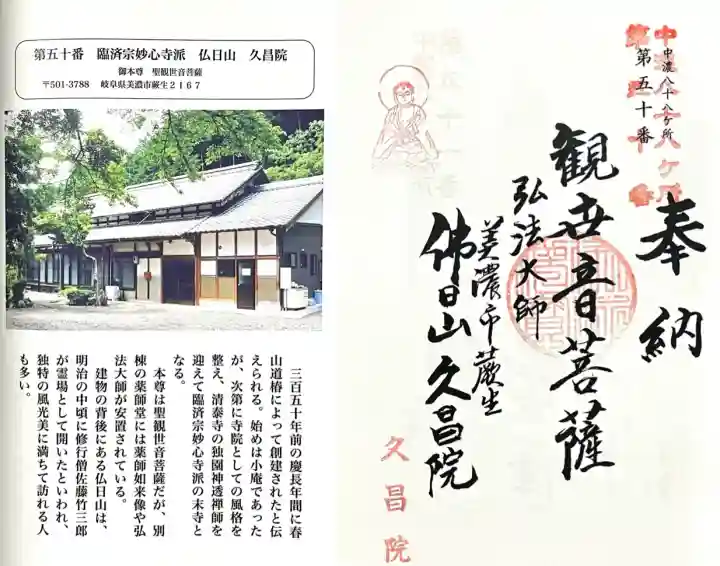 第五十番　臨済宗妙心寺派　仏日山　久昌院
御本尊　聖観世音菩薩
〒501-3788　岐阜県美濃市蕨生２１６７
三百五十年前の慶長年間に春
山道椿によって創建されたと伝
えられる。始めは小庵であった
が、次第に寺院としての風格を
整え、清泰寺の独園神透禅師を
迎えて臨済宗妙心寺派の末寺と
なる。
本尊は聖観世音菩薩だが、別
棟の薬師堂には薬師如来像や弘
法大師が安置されている。
建物の背後にある仏日山は、
明治の中頃に修行僧佐藤竹三郎
が霊場として開いたといわれ、
独特の風光美に満ちて訪れる人
も多い。
中濃八十八ケ所
第五十番
奉納
観世音菩薩
弘法大師
美濃市蕨生
佛日山久昌院
久昌院